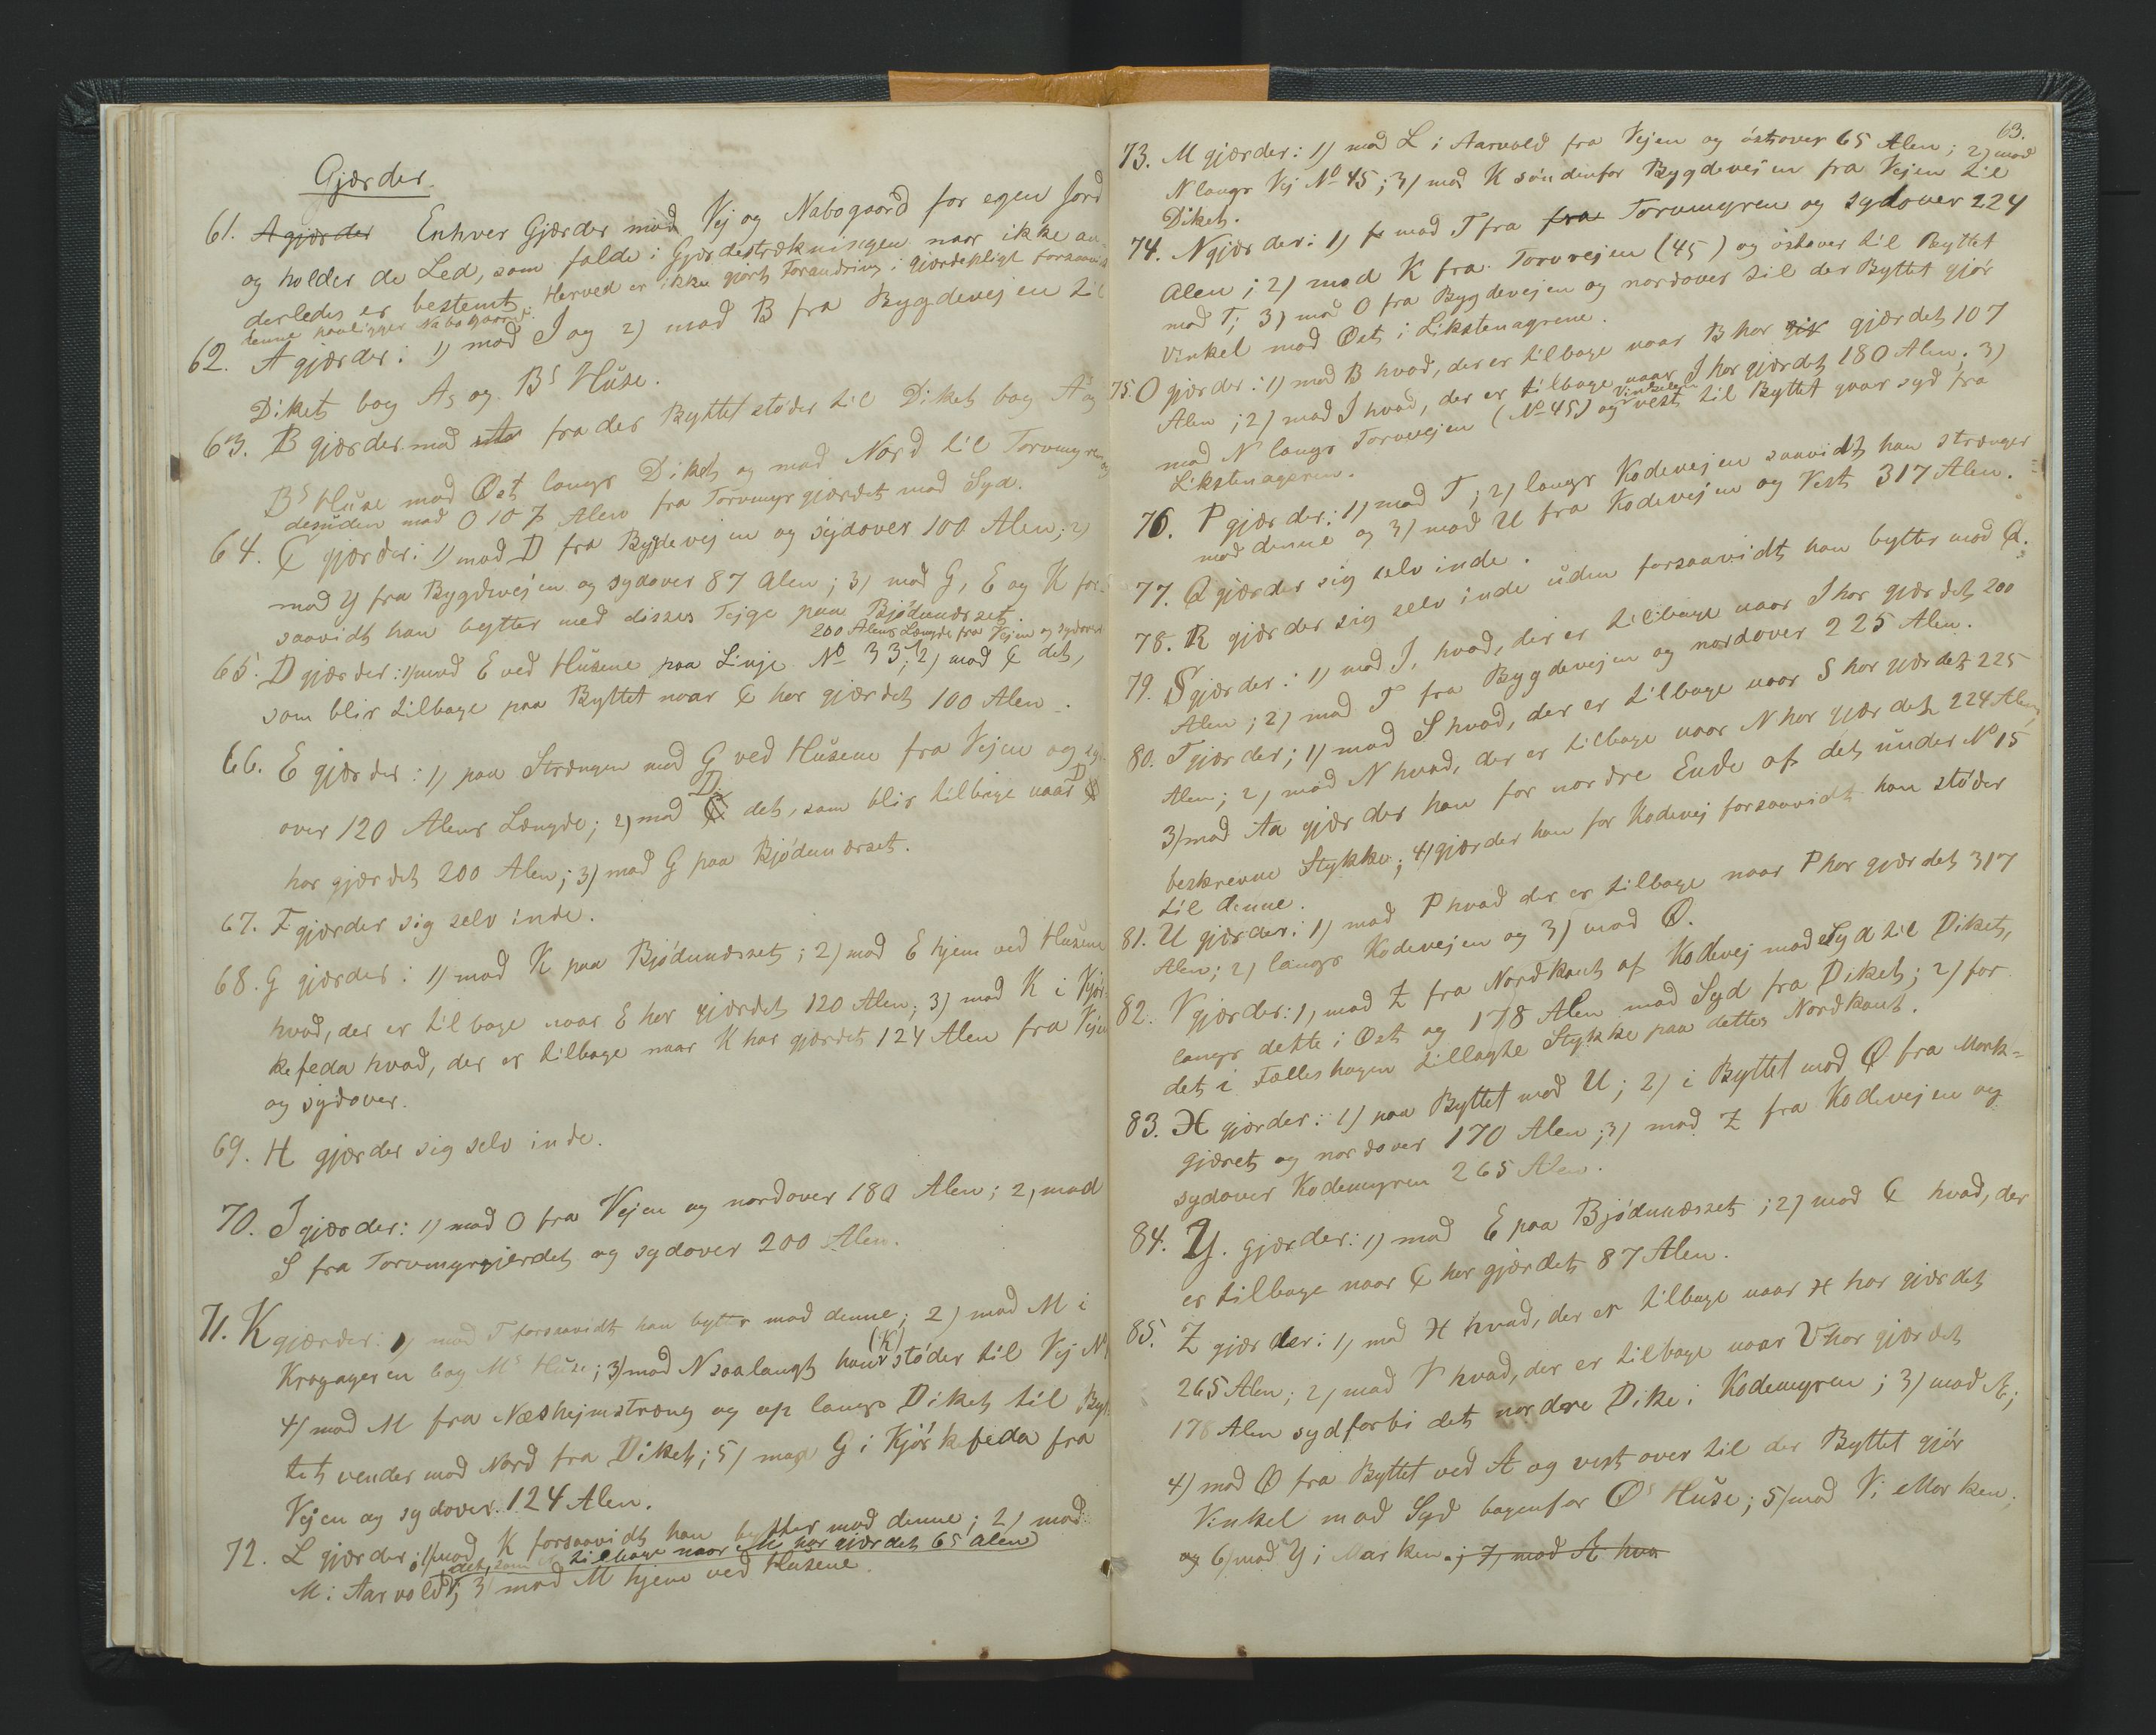 Gjærder.
61. A gjærder Enhver Gjærder mod Vej og Nabogaard for egen Jord
og holder de Led, som falde i Gjærdestrækningen naar ikke an-
derledes er bestemt. Herved er ikke gjort Forandring i gjærdepligt forsaavidt
denne paaligger Nabogaard.
62. A gjærder: 1) mod J og 2) mod B fra Bygdevejen til
Diket bag As og Bs Huse.
63. B gjærder mod fra der Byttet støder til Diket bag As og
Bs Huse mod Øst langs Diket og mod Nord til Torvmyren og
desuden mod O 107 Alen fra Torvmyrgjærdet mod Syd.
64. C gjærder: 1) mod D fra Bygdevejen og sydover 100 Alen; 2)
mod Y fra Bygdevejen og sydover 87 Alen; 3) mod G, E og K for-
saavidt han bytter med disses Tejge paa Bjødnæsset.
200 Alens Længde fra Vejen og sydover
65. D gjærder: 1) mod E ved Husene paa Linje No 33; 2) mod C det,
som blir tilbage paa Byttet naar C har gjærdet 100 Alen.
66. E gjærder: 1) paa Strængen mod G ved Husene fra Vejen og syd-
over 120 Alens Længde; 2) mod C D det, som blir tilbage naar C D
har gjærdet 200 Alen; 3) mod G paa Bjødnæsset.
67. F gjærder sig selv inde.
68. G gjærder: 1) mod K paa Bjødnæsset; 2) mod E hjem ved Husene
hvad, der er tilbage naar E har gjærdet 120 Alen; 3) mod K i Kjør-
kefeda hvad, der er tilbage naar K har gjærdet 124 Alen fra Vejen
og sydover.
69. H gjærder sig selv inde.
70. J gjærder: 1) mod O fra Vejen og nordover 180 Alen; 2, mod
S fra Torvmyrgjerdet og sydover 200 Alen.
71. K gjærder: 1) mod T forsaavidt han bytter mod denne; 2) mod M i
Kragageren bag Ms Huse; 3) mod N saalangt han (K) støder til Vej No
4) mod M fra Næshejmstræng og op langs Diket til Byt-
tet vender mod Nord fra Diket; 5) mod G i Kjørkefeda fra
Vejen og sydover 124 Alen.
72. L gjærder: 1) mod K forsaavidt han bytter mod denne; 2) mod
det, som er tilbage naar M har gjærdet 65 Alen
M i Aarvold; 3) mod M hjem ved Husene.
63.
73. M gjærder: 1) mod L i Aarvold fra Vejen og østover 65 Alen; 2) mod
N langs Vej No 45; 3) mod K søndenfor Bygdevejen fra Vejen til
Diket.
74. N gjærder: 1) mod T fra fra Torvmyren og sydover 224
Alen; 2) mod K fra Torvvejen (45) og østover til Byttet
mod T; 3) mod O fra Bygdevejen og nordover til der Byttet gjør
Vinkel mod Øst i Likstenagrene.
75. O gjærder: 1) mod B hvad, der er tilbage naar B har gjærdet 107
Alen; 2) mod J hvad, der er tilbage naar J har gjærdet 180 Alen; 3)
mod N langs Torvvejen (No 45) og vest Vinkelen til Byttet gaar syd fra
Likstenageren.
76. P gjærder: 1) mod T; 2) langs Kodevejen saavidt han strænger
mod denne og 3) mod U fra Kodevejen og Vest 317 Alen.
77. Q gjærder sig selv inde.
78. R gjærder sig selv inde uden forsaavidt han bytter mod Q.
79. S gjærder: 1) mod J, hvad, der er tilbage naar J har gjærdet 200
Alen; 2) mod T fra Bygdevejen og nordover 225 Alen.
80. T gjærder; 1) mod S hvad, der er tilbage naar S har gjærdet 225
Alen; 2) mod N hvad, der er tilbage naar N har gjærdet 224 Alen,
3) mod Aa gjærder han for nordre Ende af det under No 15
beskrevne Stykke; 4) gjærder han for Kodevej forsaavidt han støder
til denne.
81. U gjærder: 1) mod P hvad der er tilbage naar P har gjærdet 317
Alen; 2) langs Kodevejen og 3) mod Ø.
82. V gjærder: 1, mod Z fra Nordkant af Kodevej mod Syd til Diket,
langs dette i Øst og 178 Alen mod Syd fra Diket; 2) for
det i Fælleshagen tillagte Stykke paa dettes Nordkant.
83. X gjærder: 1) paa Byttet mod U; 2) i Byttet mod Ø fra Mark-
gjæret og nordover 170 Alen; 3) mod Z fra Kodevejen og
sydover Kodemyren 265 Alen.
84. Y. gjærder: 1) mod E paa Bjødnæsset; 2) mod C hvad, der
er tilbage naar C har gjærdet 87 Alen.
85. Z gjærder: 1) mod X hvad, der er tilbage naar X har gjærdet
265 Alen; 2) mod V hvad, der er tilbage naar V har gjærdet
178 Alen sydforbi det nordre Dike i Kodemyren; 3) mod Æ;
4) mod Ø fra Byttet ved Æ og vestover til der Byttet gjør
Vinkel mod Syd bagenfor Øs Huse; 5) mod V i Marken;
og 6) mod Y i Marken.; 7) mod Æ hva